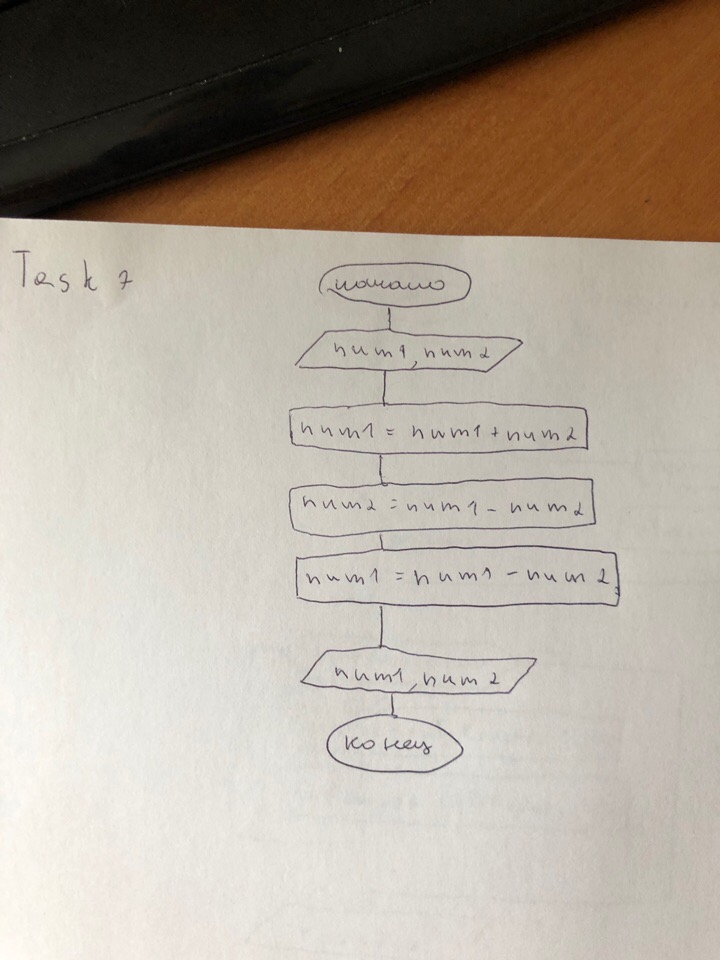 Task 7
начало
num1, num2
num1 = num1 + num2
num2 = num1 - num2
num1 = num1 - num2
num1, num2
конец